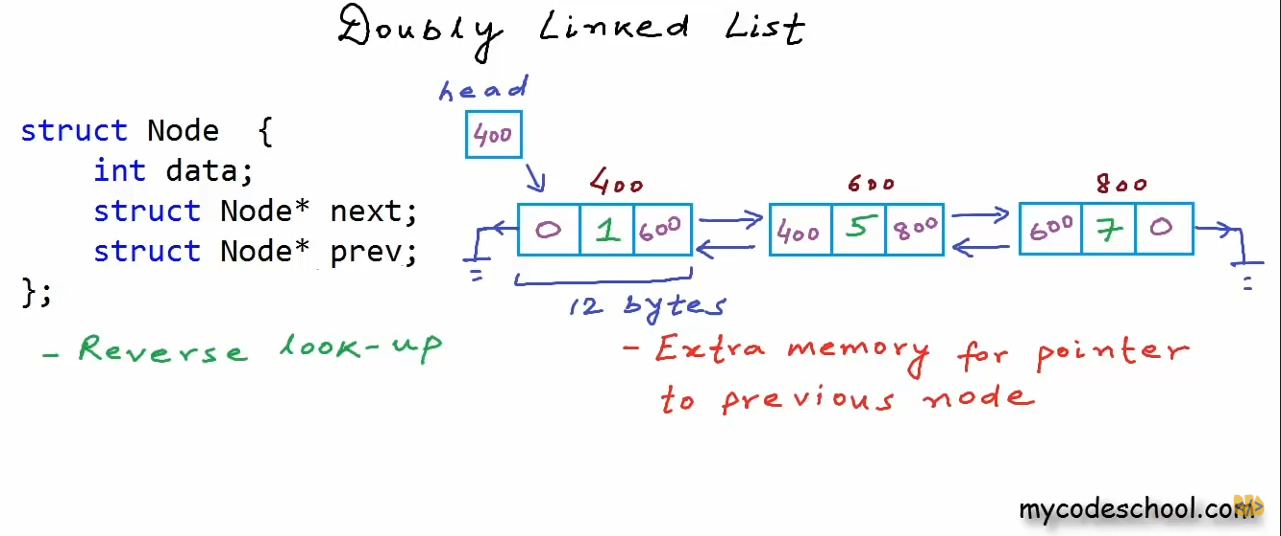 Doubly Linked List
head
400
struct Node {
int data;
struct Node* next;
struct Node* prev;
};
400 600 800
0 1 600 400 5 800 600 7 0
12 bytes
- Reverse look-up
- Extra memory for pointer
to previous node
mycodeschool.com